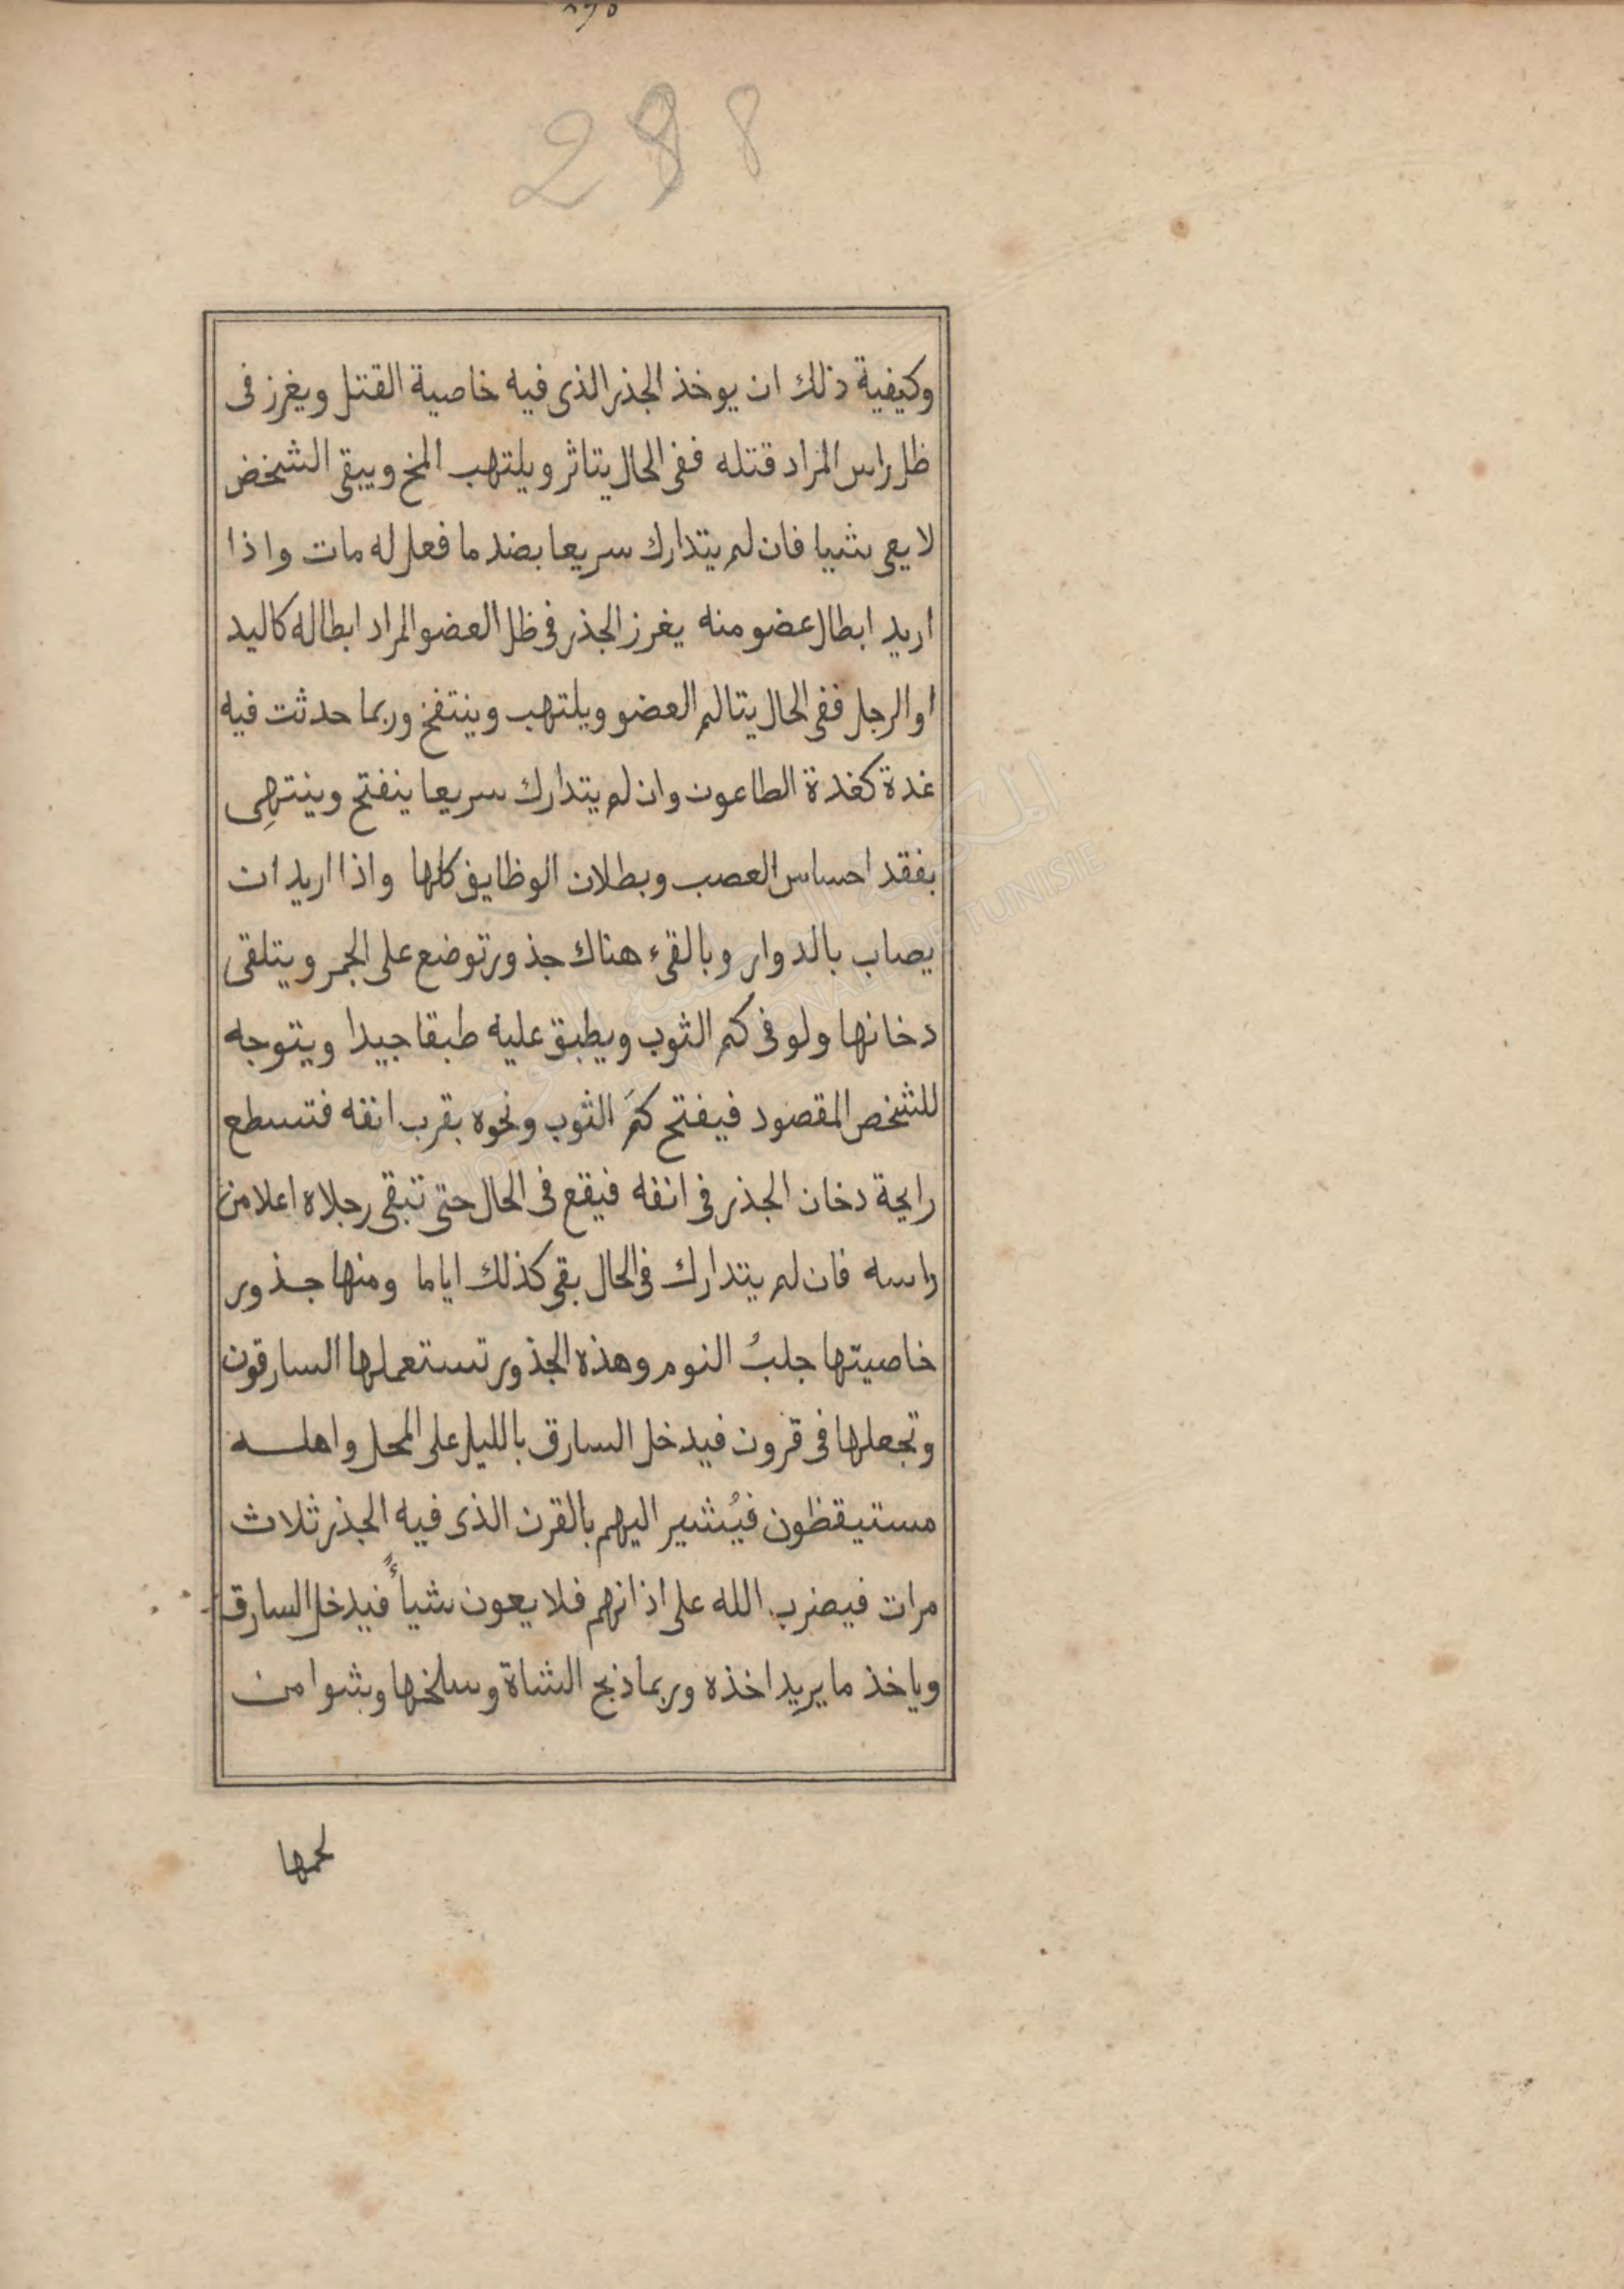 298
وكيفية ذلك ان يوخذ الجذر الذى فيه خاصية القتل ويغرز فى
ظل راس المراد قتله ففى الحال يتاثر ويلتهب المخ ويبقى الشخص
لا يعى شيا فان لم يتدارك سريعا بضد ما فعل له مات واذا
اريد ابطال عضو منه يغرز الجذر فى ظل العضو المراد ابطاله كاليد
او الرجل ففى الحال يتالم العضو ويلتهب وينتفخ وربما حدثت فيه
غدة كغدة الطاعون وان لم يتدارك سريعا ينفتح وينتهِى
بفقد احساس العصب وبطلان الوظايف كلها واذا اريد ان
يصاب بالدوار وبالقىء هناك جذور توضع على الجمر ويتلقى
دخانها ولو فى كم الثوب ويطبق عليه طبقا جيدا ويتوجه
للشخص المقصود فيفتح كمَ الثوب ونحوه بقرب انفه فتسطع
رايحة دخان الجذر فى انفه فيقع فى الحال حتى تبقى رجلاه اعلا من
راسه فان لم يتدارك فى الحال بقى كذلك اياما ومنها جذور
خاصيتها جلبُ النوم وهذه الجذور تستعملها السارقون
وتجعلها فى قرون فيدخل السارق بالليل على المحل واهله
مستيقظون فيُشير اليهم بالقرن الذى فيه الجذر ثلاث
مرات فيضرب الله على اذانهم فلا يعون شيأً فيدخل السارق
وياخذ ما يريد اخذه وربما ذبح الشاة وسلخها وشوا من
لحمها
المكتبة الوطنية التونسية
NATIONALE DE TUNISIE